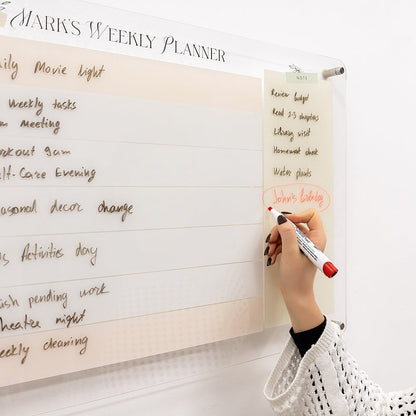 MARK'S WEEKLY PLANNER
Movie Night
Weekly tasks
Meeting
9am
Self-Care Evening
decor change
Activities day
pending work
Theatre night
cleaning
Review budget
Read 2-3 chapters
Library visit
Homework check
Water plants
John's birthday